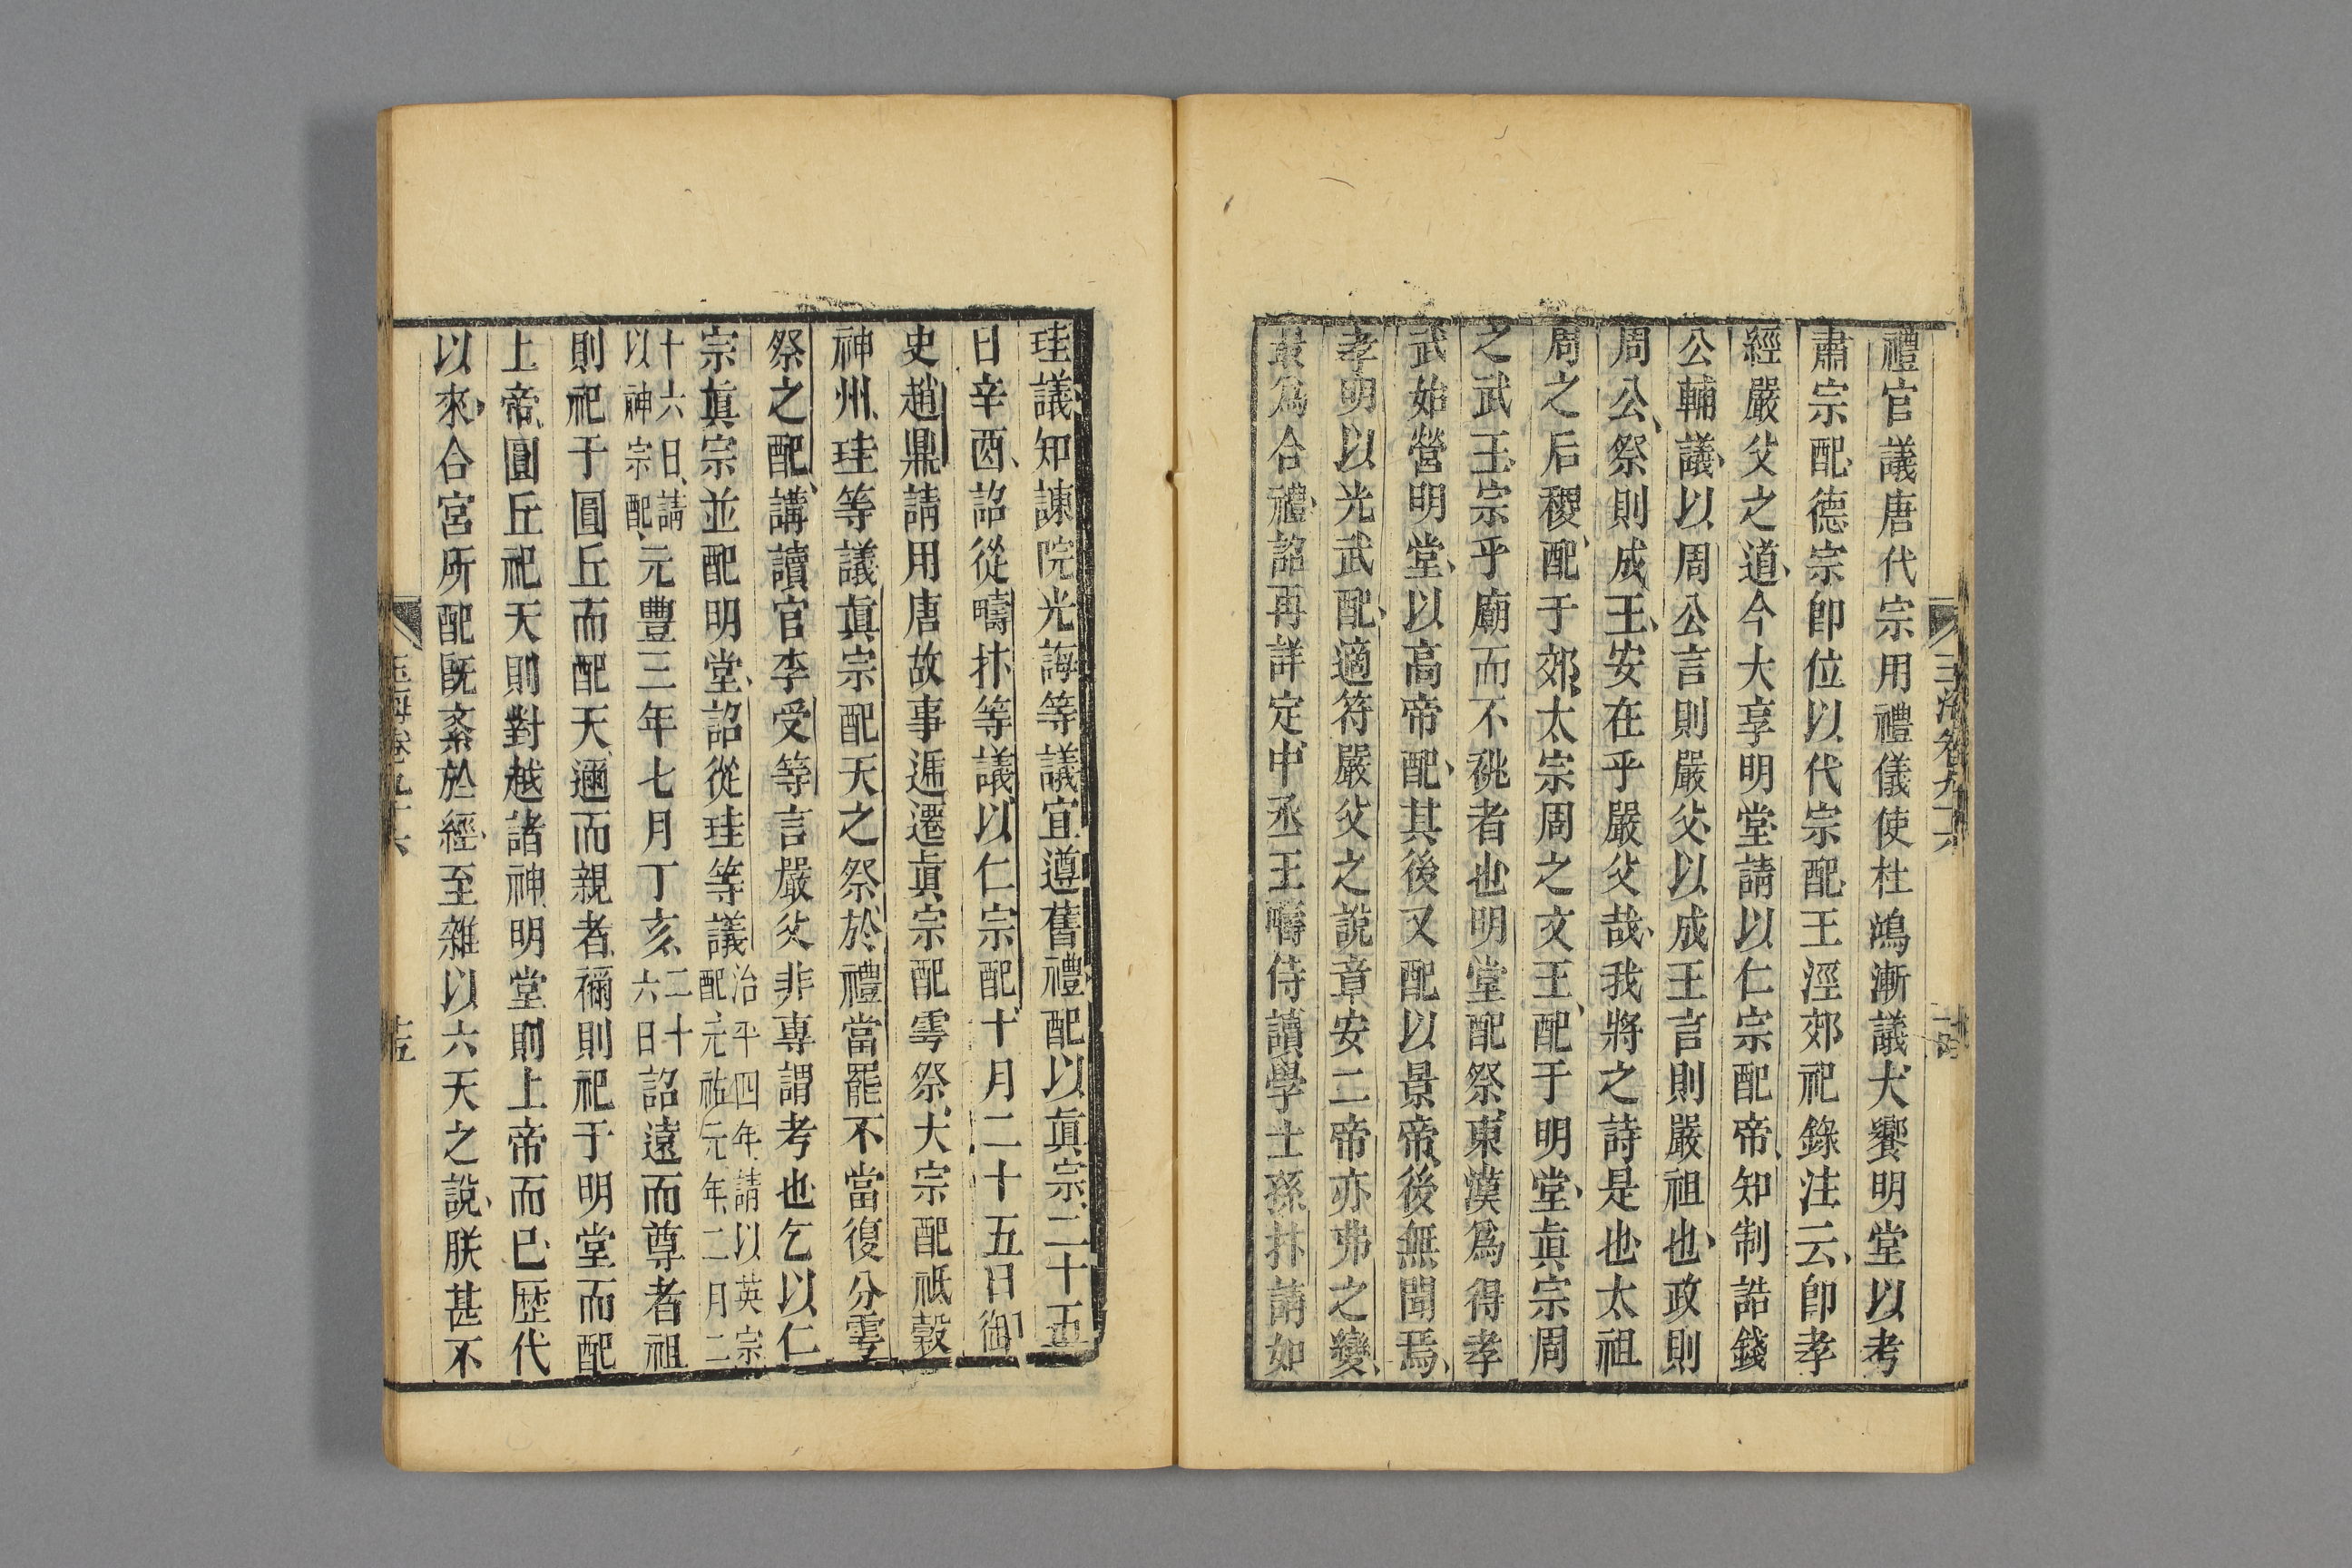 禮官議唐代宗用禮儀使杜鴻漸議大饗明堂以考
肅宗配德宗卽位以代宗配王涇郊祀錄注云卽孝
經嚴父之道今大享明堂請以仁宗配帝知制誥錢
公輔議以周公言則嚴父以成王言則嚴祖也政則
周公祭則成王安在乎嚴父哉我將之詩是也太祖
周之后稷配于郊太宗周之文王配于明堂眞宗周
之武王宗乎廟而不祧者也明堂配祭東漢爲得孝
武始營明堂以高帝配其後又配以景帝後無聞焉
孝明以光武配適符嚴父之說章安二帝亦弗之變
最爲合禮詔再詳定中丞王疇侍讀學士孫抃請如
珪議知諫院光誨等議宜遵舊禮配以眞宗二十五
日辛酉詔從疇抃等議以仁宗配十月二十五日御
史趙鼎請用唐故事遞遷眞宗配雩祭大宗配祗穀
神州珪等議眞宗配天之祭於禮當罷不當復分雩
祭之配講讀官李受等言嚴父非專謂考也乞以仁
宗眞宗並配明堂詔從珪等議治平四年請以英宗
配元祐元年二月二
十六日請
以神宗配元豐三年七月丁亥二十
六日詔遠而尊者祖
則祀于圓丘而配天邇而親者禰則祀于明堂而配
上帝圓丘祀天則對越諸神明堂則上帝而已歷代
以來合宮所配旣紊於經至雜以六天之說朕甚不
玉海卷九十六
十五